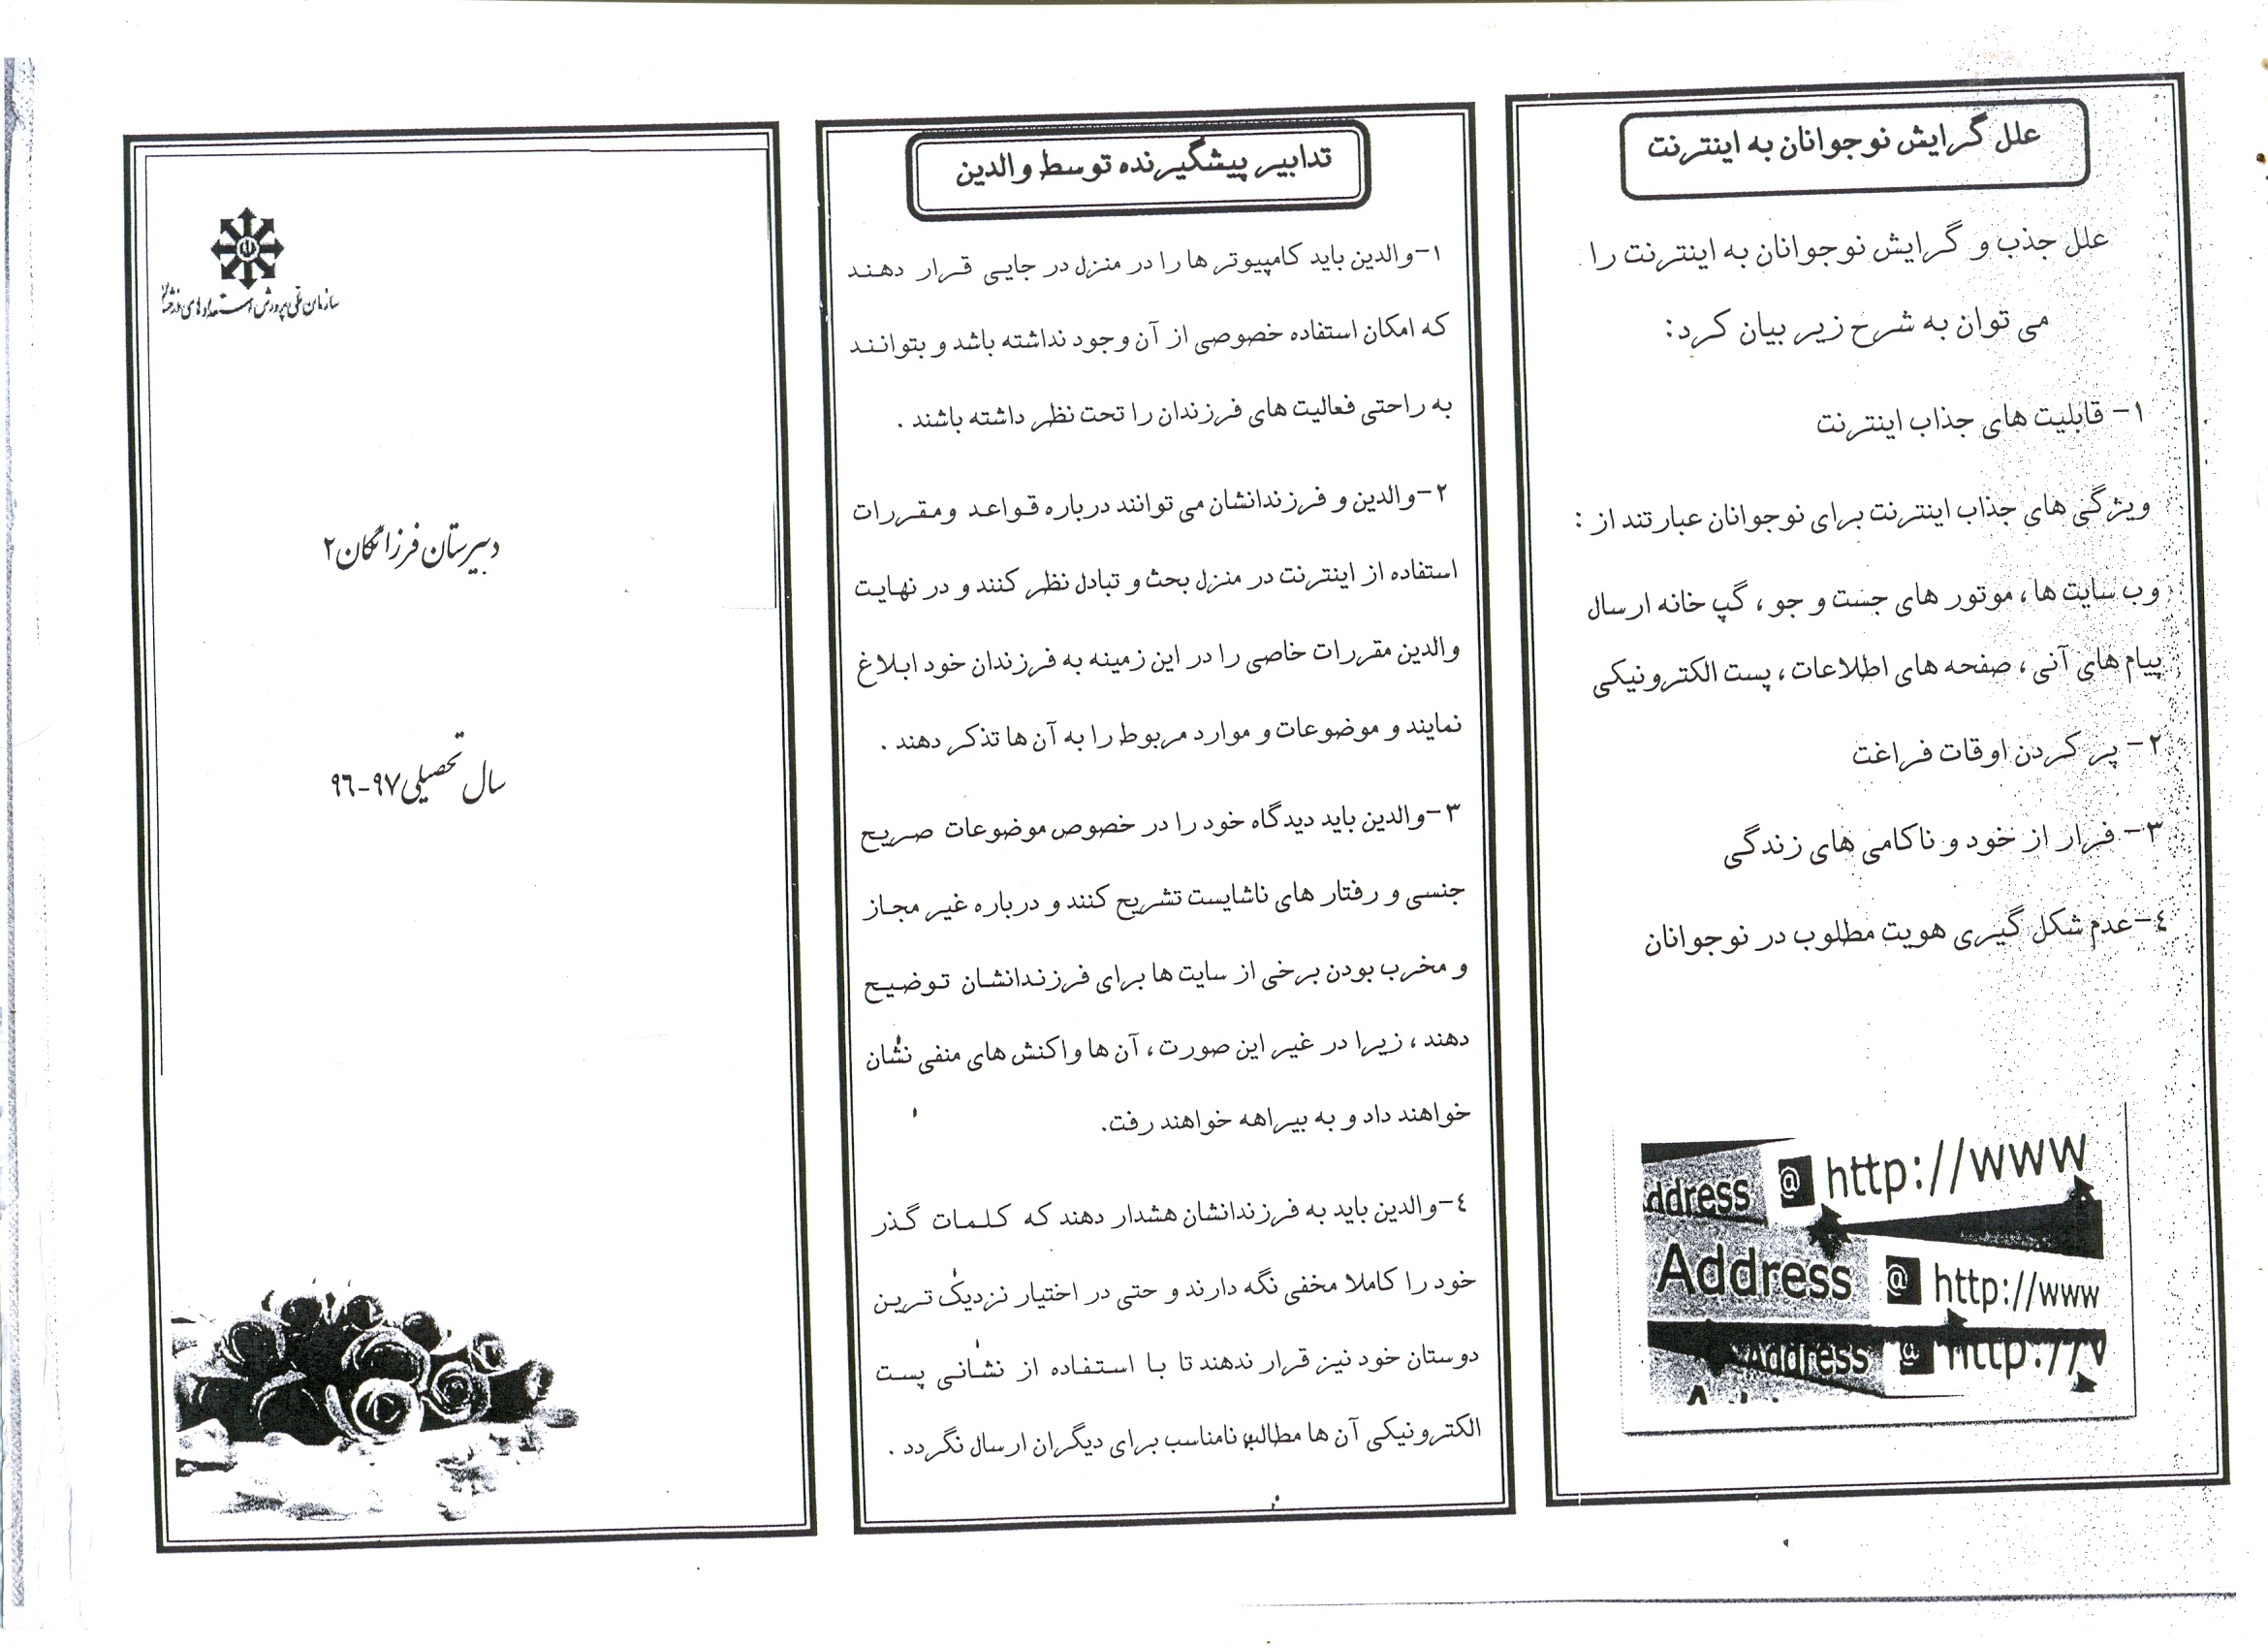 علل گرایش نوجوانان به اینترنت
علل جذب و گرایش نوجوانان به اینترنت را
می توان به شرح زیر بیان کرد:
۱- قابلیت های جذاب اینترنت
ویژگی های جذاب اینترنت برای نوجوانان عبارتند از :
وب سایت ها ، موتور های جست و جو ، گپ خانه ارسال
پیام های آنی ، صفحه های اطلاعات ، پست الکترونیکی
۲- پر کردن اوقات فراغت
۳- فرار از خود و ناکامی های زندگی
٤-عدم شکل گیری هویت مطلوب در نوجوانان
ddress @ http://www
Address @ http://www
Address @ http://
تدابیر پیشگیرنده توسط والدین
۱-والدین باید کامپیوتر ها را در منزل در جایی قرار دهند
که امکان استفاده خصوصی از آن وجود نداشته باشد و بتوانند
به راحتی فعالیت های فرزندان را تحت نظر داشته باشند .
۲-والدین و فرزندانشان می توانند درباره قواعد ومقررات
استفاده از اینترنت در منزل بحث و تبادل نظر کنند و در نهایت
والدین مقررات خاصی را در این زمینه به فرزندان خود ابلاغ
نمایند و موضوعات و موارد مربوط را به آن ها تذکر دهند .
۳-والدین باید دیدگاه خود را در خصوص موضوعات صریح
جنسی و رفتار های ناشایست تشریح کنند و درباره غیر مجاز
و مخرب بودن برخی از سایت ها برای فرزندانشان توضیح
دهند ، زیرا در غیر این صورت ، آن ها واکنش های منفی نشان
خواهند داد و به بیراهه خواهند رفت.
٤-والدین باید به فرزندانشان هشدار دهند که کلمات گذر
خود را کاملا مخفی نگه دارند و حتی در اختیار نزدیک ترین
دوستان خود نیز قرار ندهند تا با استفاده از نشانی پست
الکترونیکی آن ها مطالب نامناسب برای دیگران ارسال نگردد .
سازمان ملی پرورش استعدادهای درخشان
دبیرستان فرزانگان ۲
سال تحصیلی ۹۷-۹٦